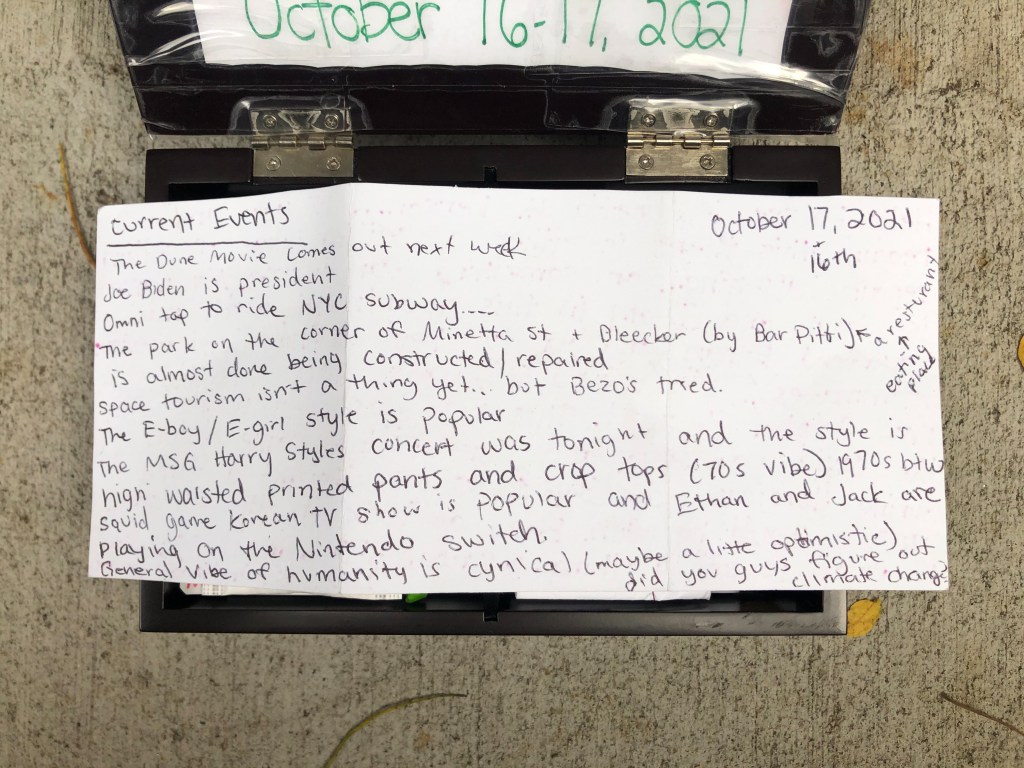 October 16-17, 2021
Current Events
October 17, 2021
+
16th
The Dune Movie Comes out next week
Joe Biden is president
Omni tap to ride NYC subway....
The park on the corner of Minetta St + Bleecker (by Bar Pitti) ← a resturant
← eating place
is almost done being constructed/repaired
space tourism isn't a thing yet... but Bezo's tried.
The E-boy/E-girl style is popular
The MSG Harry Styles concert was tonight and the style is
high waisted printed pants and crop tops (70s vibe) 1970s btw
squid game Korean TV show is popular and Ethan and Jack are
playing on the Nintendo switch.
General vibe of humanity is cynical (maybe a little optimistic)
did you guys figure out
climate change?